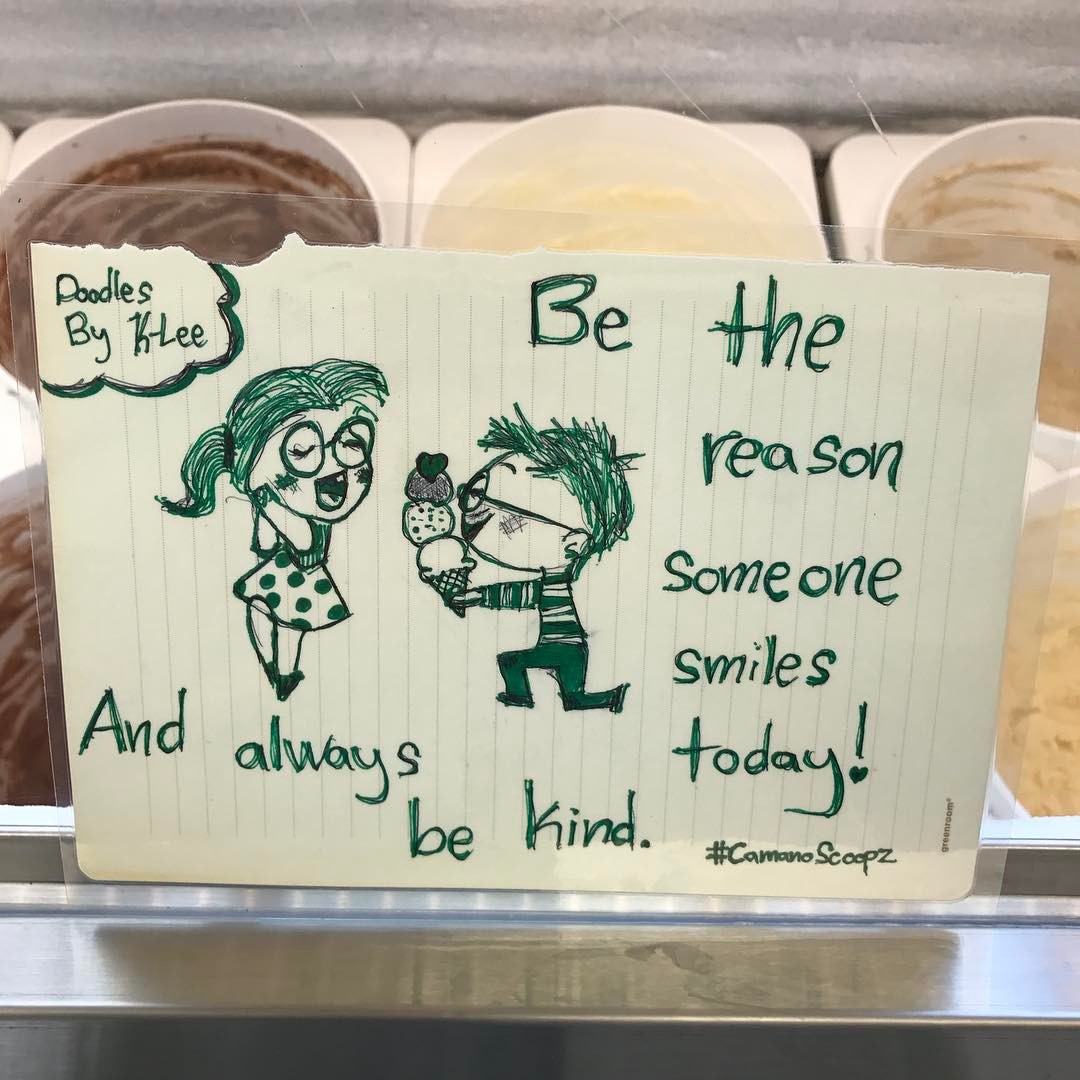 Doodles
By K-Lee
Be the
reason
someone
smiles
today!
And always
be kind.
#CamanoScoopz
greenroom®